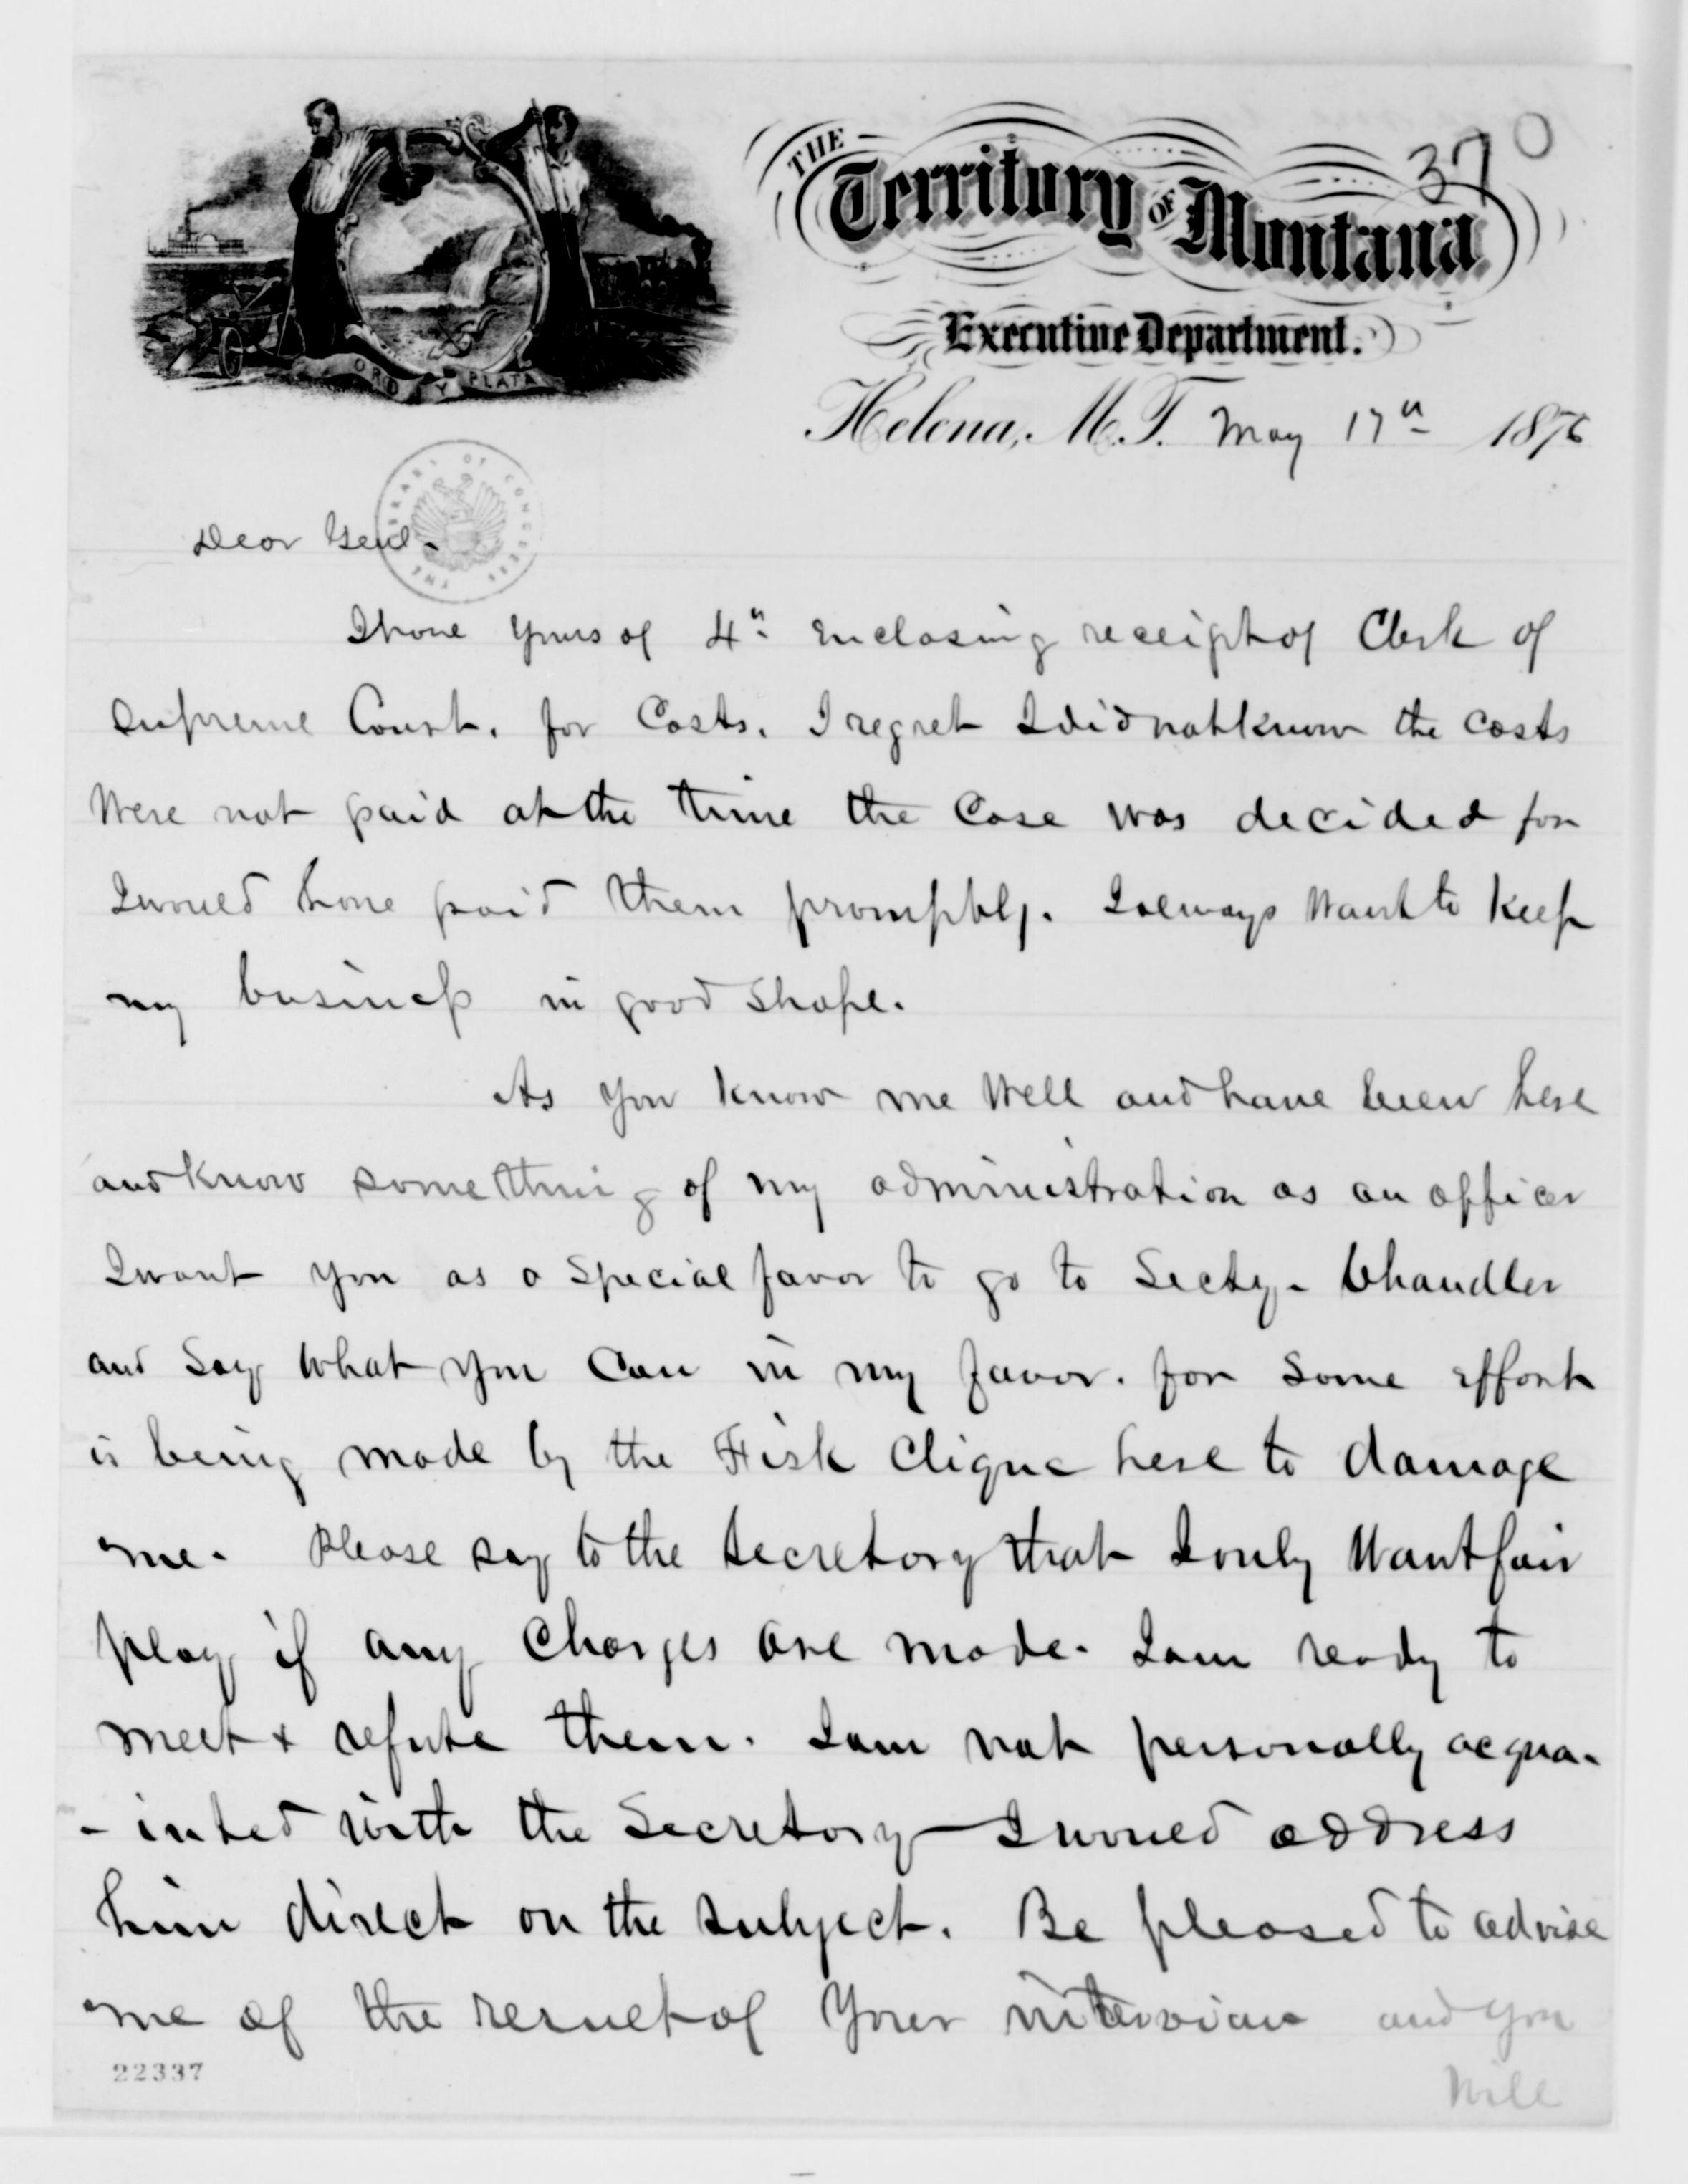 THE
Territory OF Montana
370
Executive Department.
ORO Y PLATA
Helena, M.T. May 17th 1876
THE LIBRARY OF CONGRESS
Dear Genl.
I have yours of 4th enclosing receipt of Clerk of
Supreme Court. for Costs. I regret I did not know the costs
Were not paid at the time the Case was decided for
I would have paid them promptly. I always Want to Keep
my business in good Shape.
As you know me Well and have been here
and know something of my administration as an officer
I want you as a Special favor to go to Secty. Chandler
and Say What you Can in my favor. for Some effort
is being made by the Fisk Clique here to damage
me. Please say to the Secretary that I only Want fair
play if any Charges are made. I am ready to
meet & refute them. I am not personally acqua-
-inted with the Secretary I would address
him direct on the subject. Be pleased to advise
me of the result of Your interview and you
Will
22337